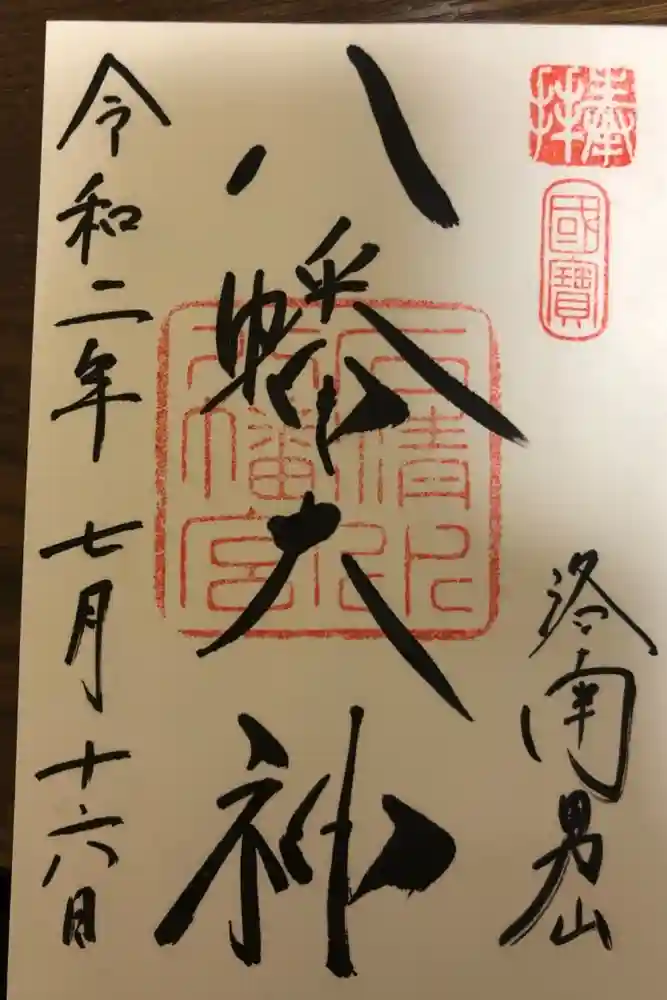 奉拝
國寶
洛南男山
八幡大神
石清水
八幡宮印
令和二年七月十六日